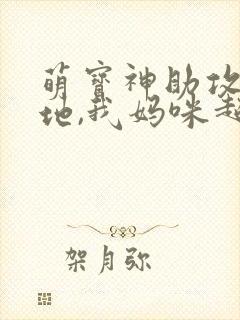 萌宝神助攻
地,我妈咪超
架月弥